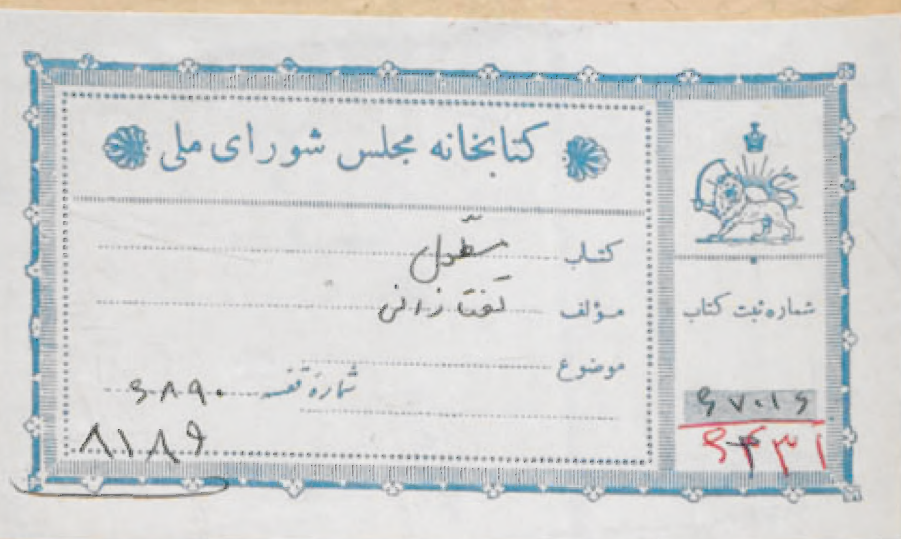 کتابخانه مجلس شورای ملی
کتاب مطوّل
مؤلف تفتازانی
موضوع
شماره قفسه
۸۱۸۶
شماره ثبت کتاب
۶۷۰۱۶